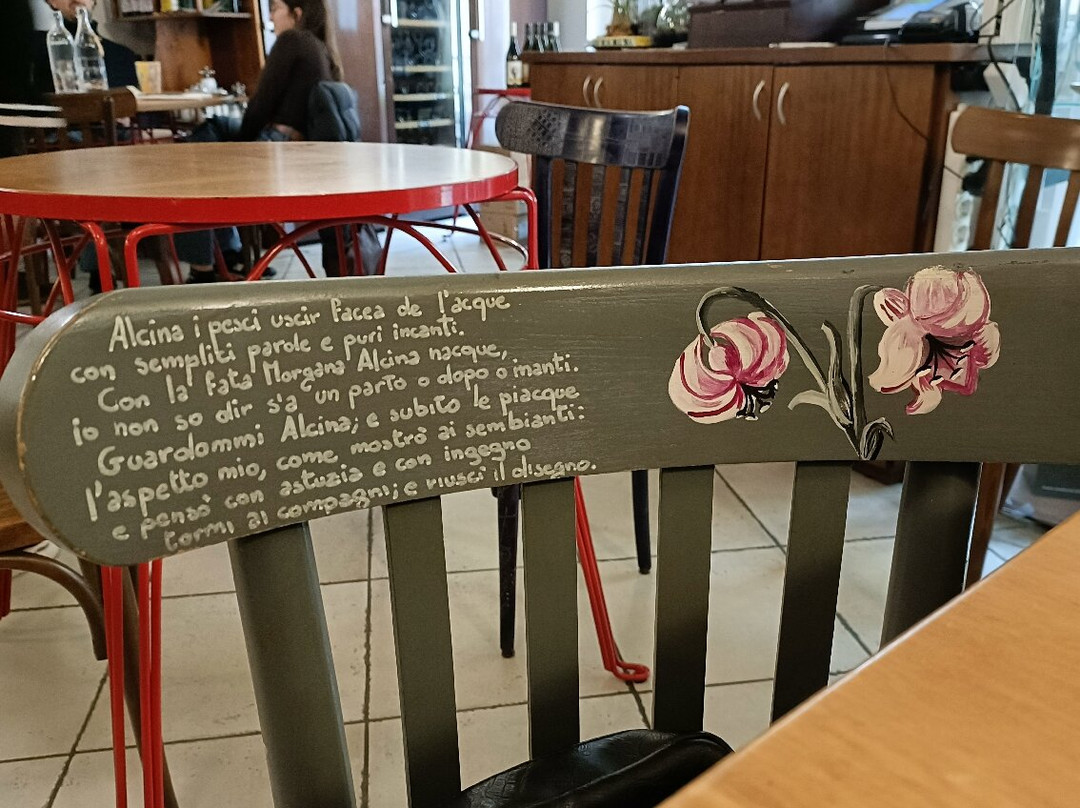 Alcina i pesci uscir facea de l'acque
con semplici parole e puri incanti.
Con la fata Morgana Alcina nacque,
io non so dir s'a un parto o dopo o inanti.
Guardommi Alcina; e subito le piacque
l'aspetto mio, come mostrò ai sembianti:
e pensò con astuzia e con ingegno
tormi ai compagni; e riuscì il disegno.